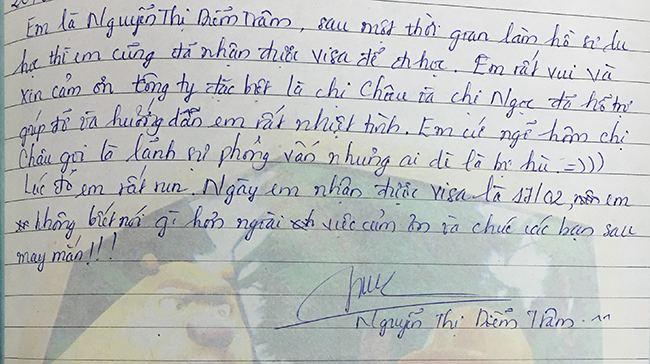 Em là Nguyễn Thị Diễm Trâm, sau một thời gian làm hồ sơ du
học thì em cũng đã nhận được visa để đi học. Em rất vui và
xin cảm ơn công ty đặc biệt là chị Châu và chị Ngọc đã hỗ trợ
giúp đỡ và hướng dẫn em rất nhiệt tình. Em cứ ngỡ hôm chị
Châu gọi là lãnh sự phỏng vấn nhưng ai dè là bị hù. =)))
Lúc đó em rất run. Ngày em nhận được visa là 17/02, nên em
không biết nói gì hơn ngoài việc cảm ơn và chúc các bạn sau
may mắn!!!
Nguyễn Thị Diễm Trâm. ^^